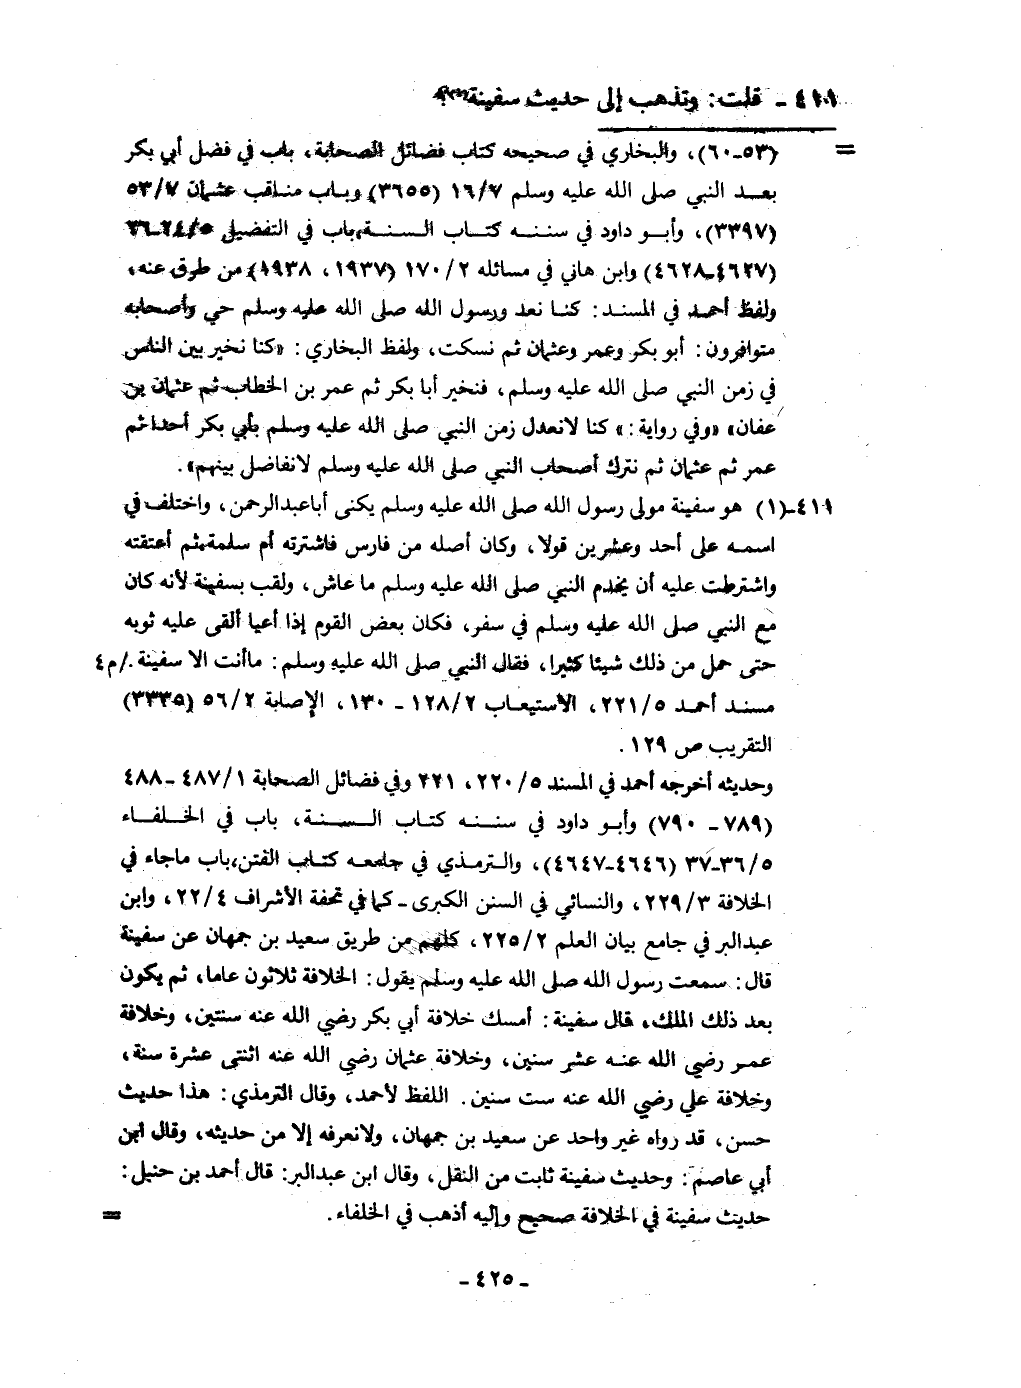 ٤١١ - قلت: وتذهب إلى حديث سفينة
= (٥٣-٦٠)، والبخاري في صحيحه كتاب فضائل الصحابة، باب في فضل أبي بكر
بعد النبي صلى الله عليه وسلم ١٦/٧ (٣٦٥٥) وباب مناقب عثمان ٥٣/٧
(٣٣٩٧)، وأبو داود في سننه كتاب السنة،باب في التفضيل ٢٤/٥-٢٦
(٤٦٢٧-٤٦٢٨) وابن هاني في مسائله ١٧٠/٢ (١٩٣٧، ١٩٣٨) من طرق عنه،
ولفظ أحمد في المسند: كنا نعد ورسول الله صلى الله عليه وسلم حي وأصحابه
متوافرون: أبو بكر وعمر وعثمان ثم نسكت، ولفظ البخاري: «كنا نخير بين الناس
في زمن النبي صلى الله عليه وسلم، فنخير أبا بكر ثم عمر بن الخطاب ثم عثمان بن
عفان» «وفي رواية:» كنا لانعدل زمن النبي صلى الله عليه وسلم بأبي بكر أحدا ثم
عمر ثم عثمان ثم نترك أصحاب النبي صلى الله عليه وسلم لانفاضل بينهم».
٤١١-(١) هو سفينة مولى رسول الله صلى الله عليه وسلم يكنى أباعبدالرحمن، واختلف في
اسمه على أحد وعشرين قولا، وكان أصله من فارس فاشترته أم سلمة،ثم أعتقته
واشترطت عليه أن يخدم النبي صلى الله عليه وسلم ما عاش، ولقب بسفينة لأنه كان
مع النبي صلى الله عليه وسلم في سفر، فكان بعض القوم إذا أعيا ألقى عليه ثوبه
حتى حمل من ذلك شيئا كثيرا، فقال النبي صلى الله عليه وسلم: ماأنت الا سفينة ./م٤
مسند أحمد ٢٢١/٥، الاستيعاب ١٢٨/٢ - ١٣٠، الإصابة ٥٦/٢ (٣٣٣٥)
التقريب ص ١٢٩.
وحديثه أخرجه أحمد في المسند ٢٢٠/٥، ٢٢١ وفي فضائل الصحابة ٤٨٧/١ -٤٨٨
(٧٨٩- ٧٩٠) وأبو داود في سننه كتاب السنة، باب في الخلفاء
٣٦/٥-٣٧ (٤٦٤٦-٤٦٤٧)، والترمذي في جامعه كتاب الفتن،باب ماجاء في
الخلافة ٢٢٩/٣، والنسائي في السنن الكبرى - كما في تحفة الأشراف ٢٢/٤، وابن
عبدالبر في جامع بيان العلم ٢٢٥/٢، كلهم من طريق سعيد بن جمهان عن سفينة
قال: سمعت رسول الله صلى الله عليه وسلم يقول: الخلافة ثلاثون عاما، ثم يكون
بعد ذلك الملك، قال سفينة: أمسك خلافة أبي بكر رضي الله عنه سنتين، وخلافة
عمر رضي الله عنه عشر سنين، وخلافة عثمان رضي الله عنه اثنتي عشرة سنة،
وخلافة علي رضي الله عنه ست سنين. اللفظ لأحمد، وقال الترمذي: هذا حديث
حسن، قد رواه غير واحد عن سعيد بن جمهان، ولانعرفه إلا من حديثه، وقال ابن
أبي عاصم: وحديث سفينة ثابت من النقل، وقال ابن عبدالبر: قال أحمد بن حنبل:
حديث سفينة في الخلافة صحيح وإليه أذهب في الخلفاء. =
- ٤٢٥ -